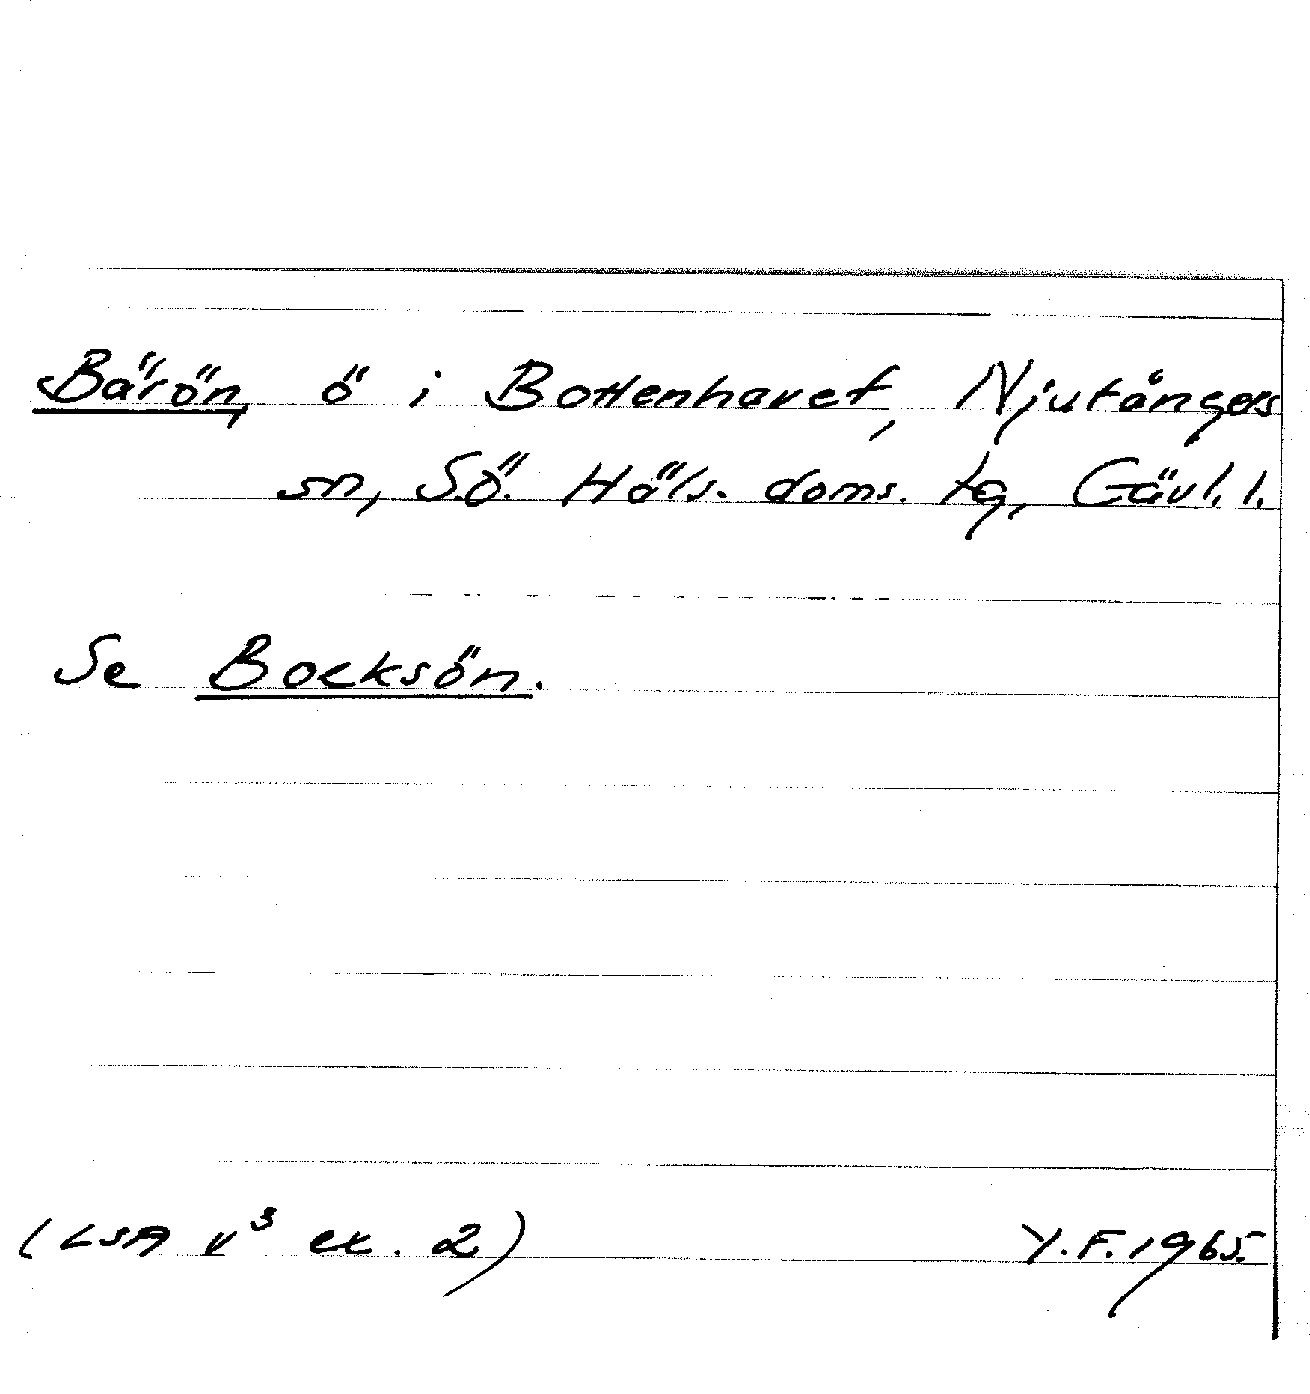 Bärön, ö i Bottenhavet, Njutångers
sn, Sö. Häls. doms. tg, Gävl. l.
Se Bocksön.
(LSA v³ ex. 2) Y.F. 1965.